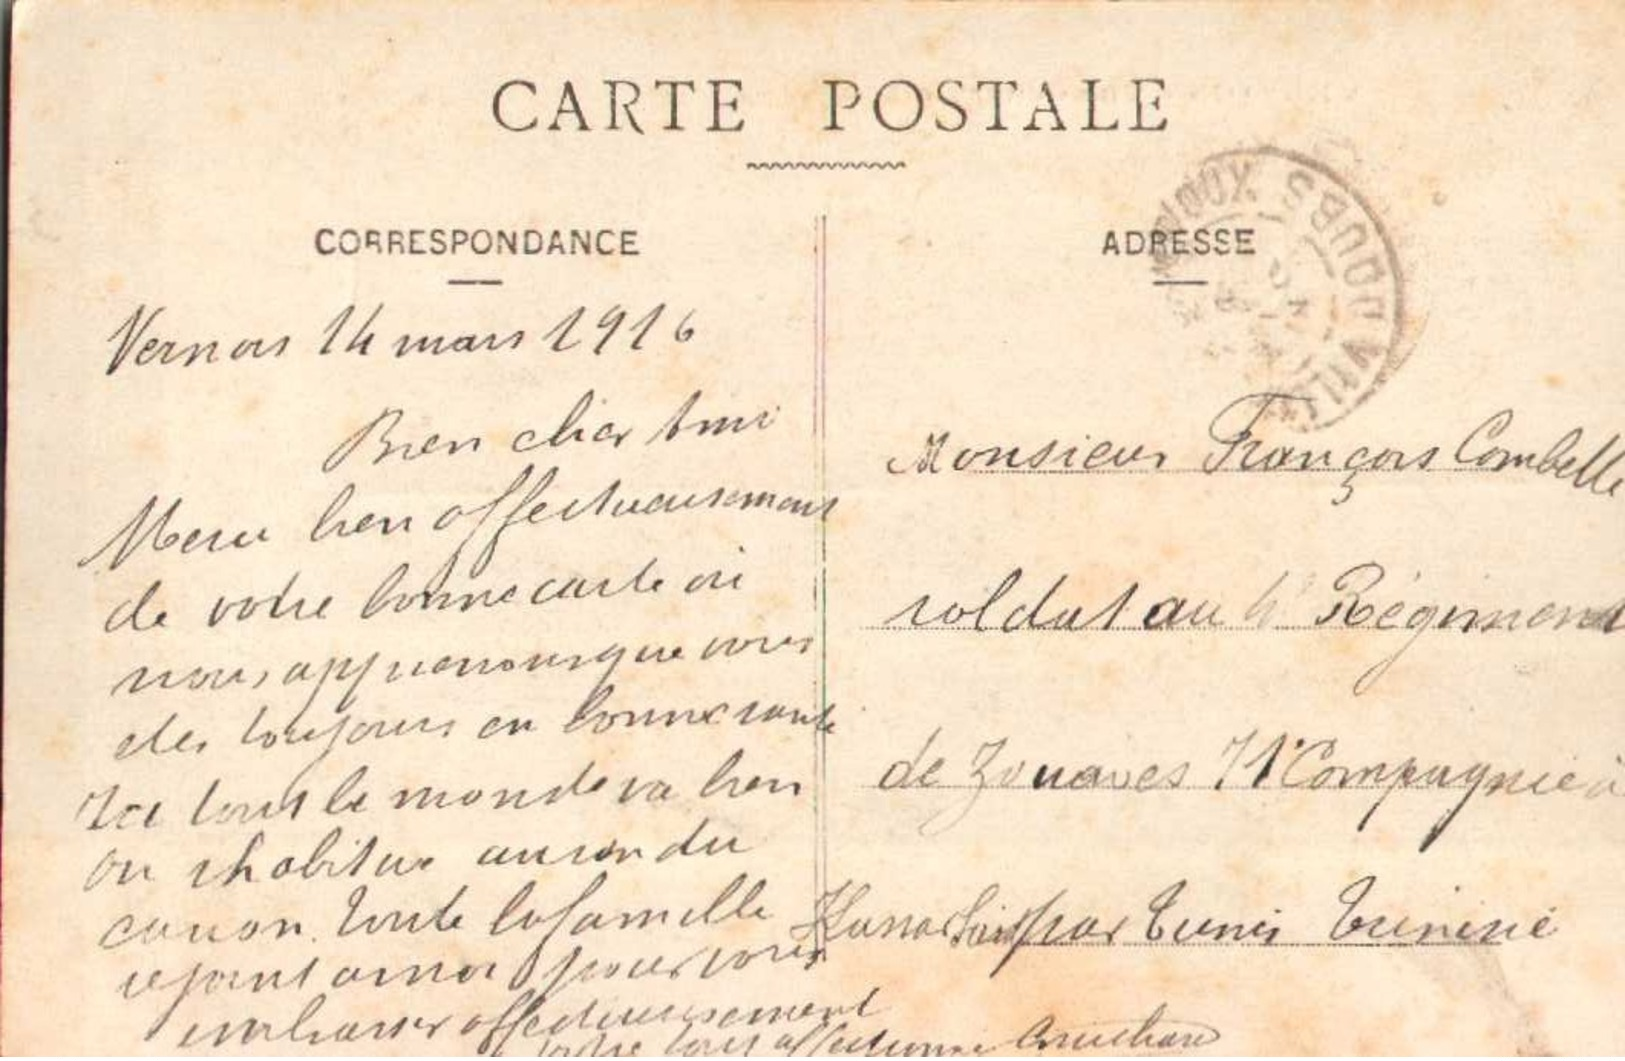 CARTE POSTALE
CORRESPONDANCE
Vernois 14 mars 1916
Bien cher Ami
Merci bien affectueusement
de votre bonne carte où
nous apprenons que vous
etes toujours en bonne santé
Ici tout le monde va bien
on shabitue au son du
canon. Toute la famille
se joint a moi pour vous
embrasser affectueusement
votre tout affectionné
ADRESSE
DOUBS
Monsieur François Combelle
soldat au 4e Régiment
de Zouaves 71e Compagnie à
par Tunis Tunisie